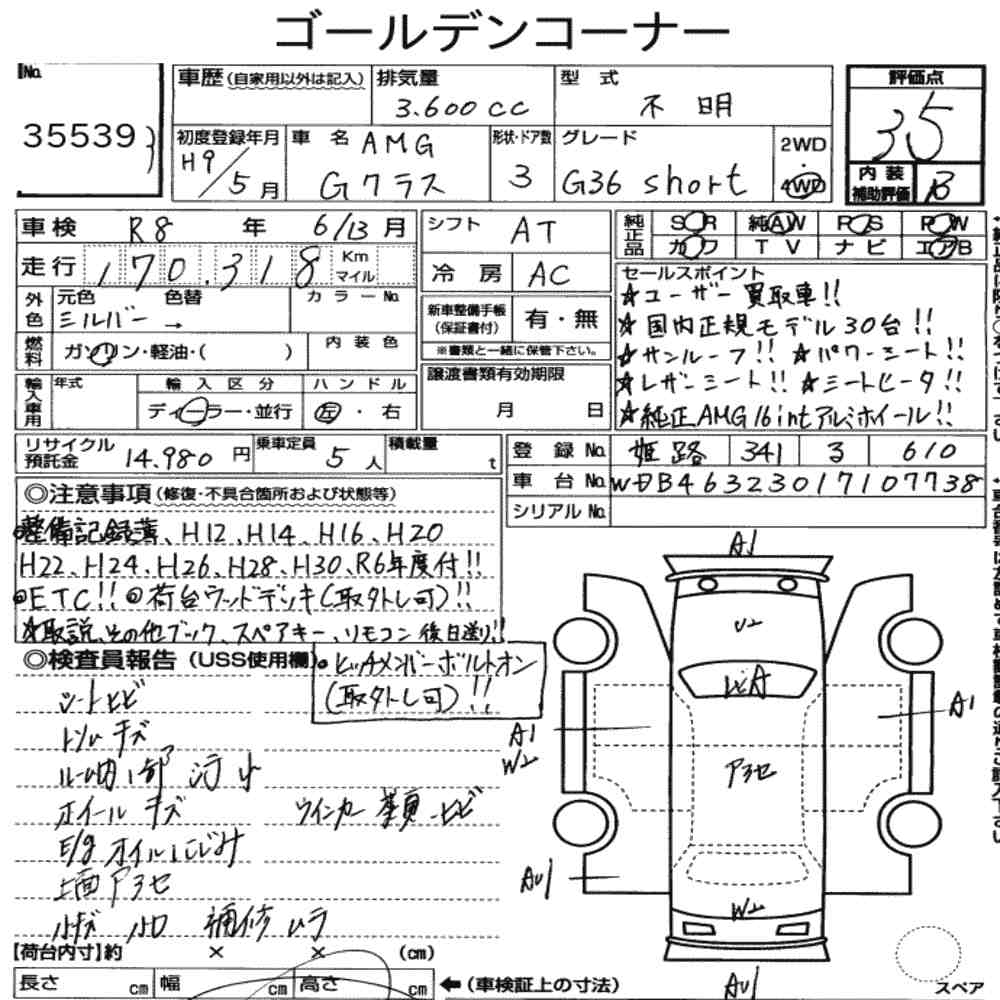 ゴールデンコーナー
No.
35539
車歴 (自家用以外は記入)
排気量
3.600cc
型式
不明
評価点
3.5
初度登録年月
H9/5月
車名
AMG
Gクラス
形状・ドア数
3
グレード
G36 short
2WD
・
4WD
内装
補助評価
B
車検 R8 年 6/13月
走行 170.318 Km マイル
外色
元色 色替
シルバー →
カラーNo.
燃料
ガソリン・軽油・( )
内装色
輸入車用
年式
輸入区分
ディーラー・並行
ハンドル
左・右
シフト AT
冷房 AC
新車整備手帳
(保証書付)
有・無
※書類と一緒に保管下さい。
譲渡書類有効期限
月 日
純正品
SR 純AW PS PW
カワ TV ナビ エアB
セールスポイント
☆ユーザー買取車!!
☆国内正規モデル30台!!
☆サンルーフ!! ☆パワーシート!!
☆レザーシート!! ☆シートヒータ!!
☆純正AMG16intアルミホイール!!
リサイクル
預託金
14.980円
乗車定員
5人
積載量
t
登録No. 姫路 341 3 610
車台No. WDB46323017107738
シリアルNo.
◎注意事項 (修復・不具合箇所および状態等)
◎整備記録簿、H12、H14、H16、H20
H22、H24、H26、H28、H30、R6年度付!!
◎ETC!! ◎荷台ウッドデッキ(取外し可)!!
☆取説、その他ブック、スペアキー、リモコン後日送り!!
◎検査員報告 (USS使用欄)
ヒッチメンバーボルトオン
(取外し可)!!
シートヒビ
トリムキズ
ホイールキズ
ウインカー
ヒビ
E/gオイルにじみ
上面アラセ
小キズ 小凹 補修ムラ
【荷台内寸】約 × × (cm)
長さ cm 幅 cm 高さ cm
←(車検証上の寸法)
A1
U2
A1
W2
A1
アラセ
AU1
W2
AU1
スペア